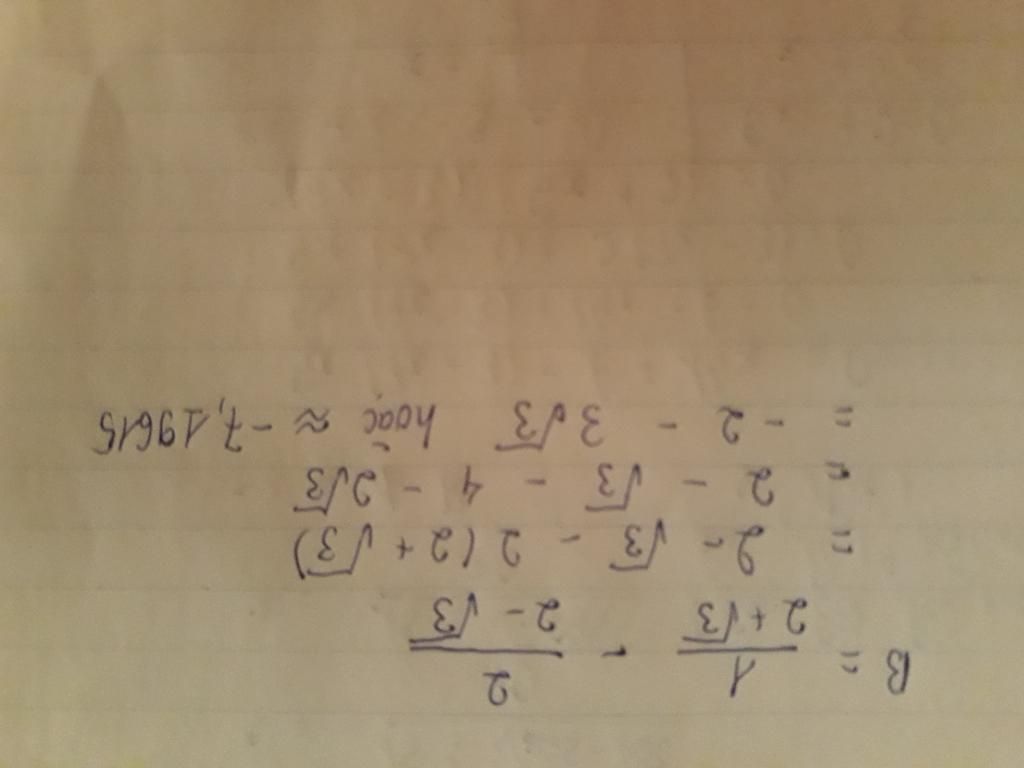 B = 1/(2 + √3) - 2/(2 - √3)
= 2 - √3 - 2(2 + √3)
= 2 - √3 - 4 - 2√3
= - 2 - 3√3 hoặc ≈ -7,19615